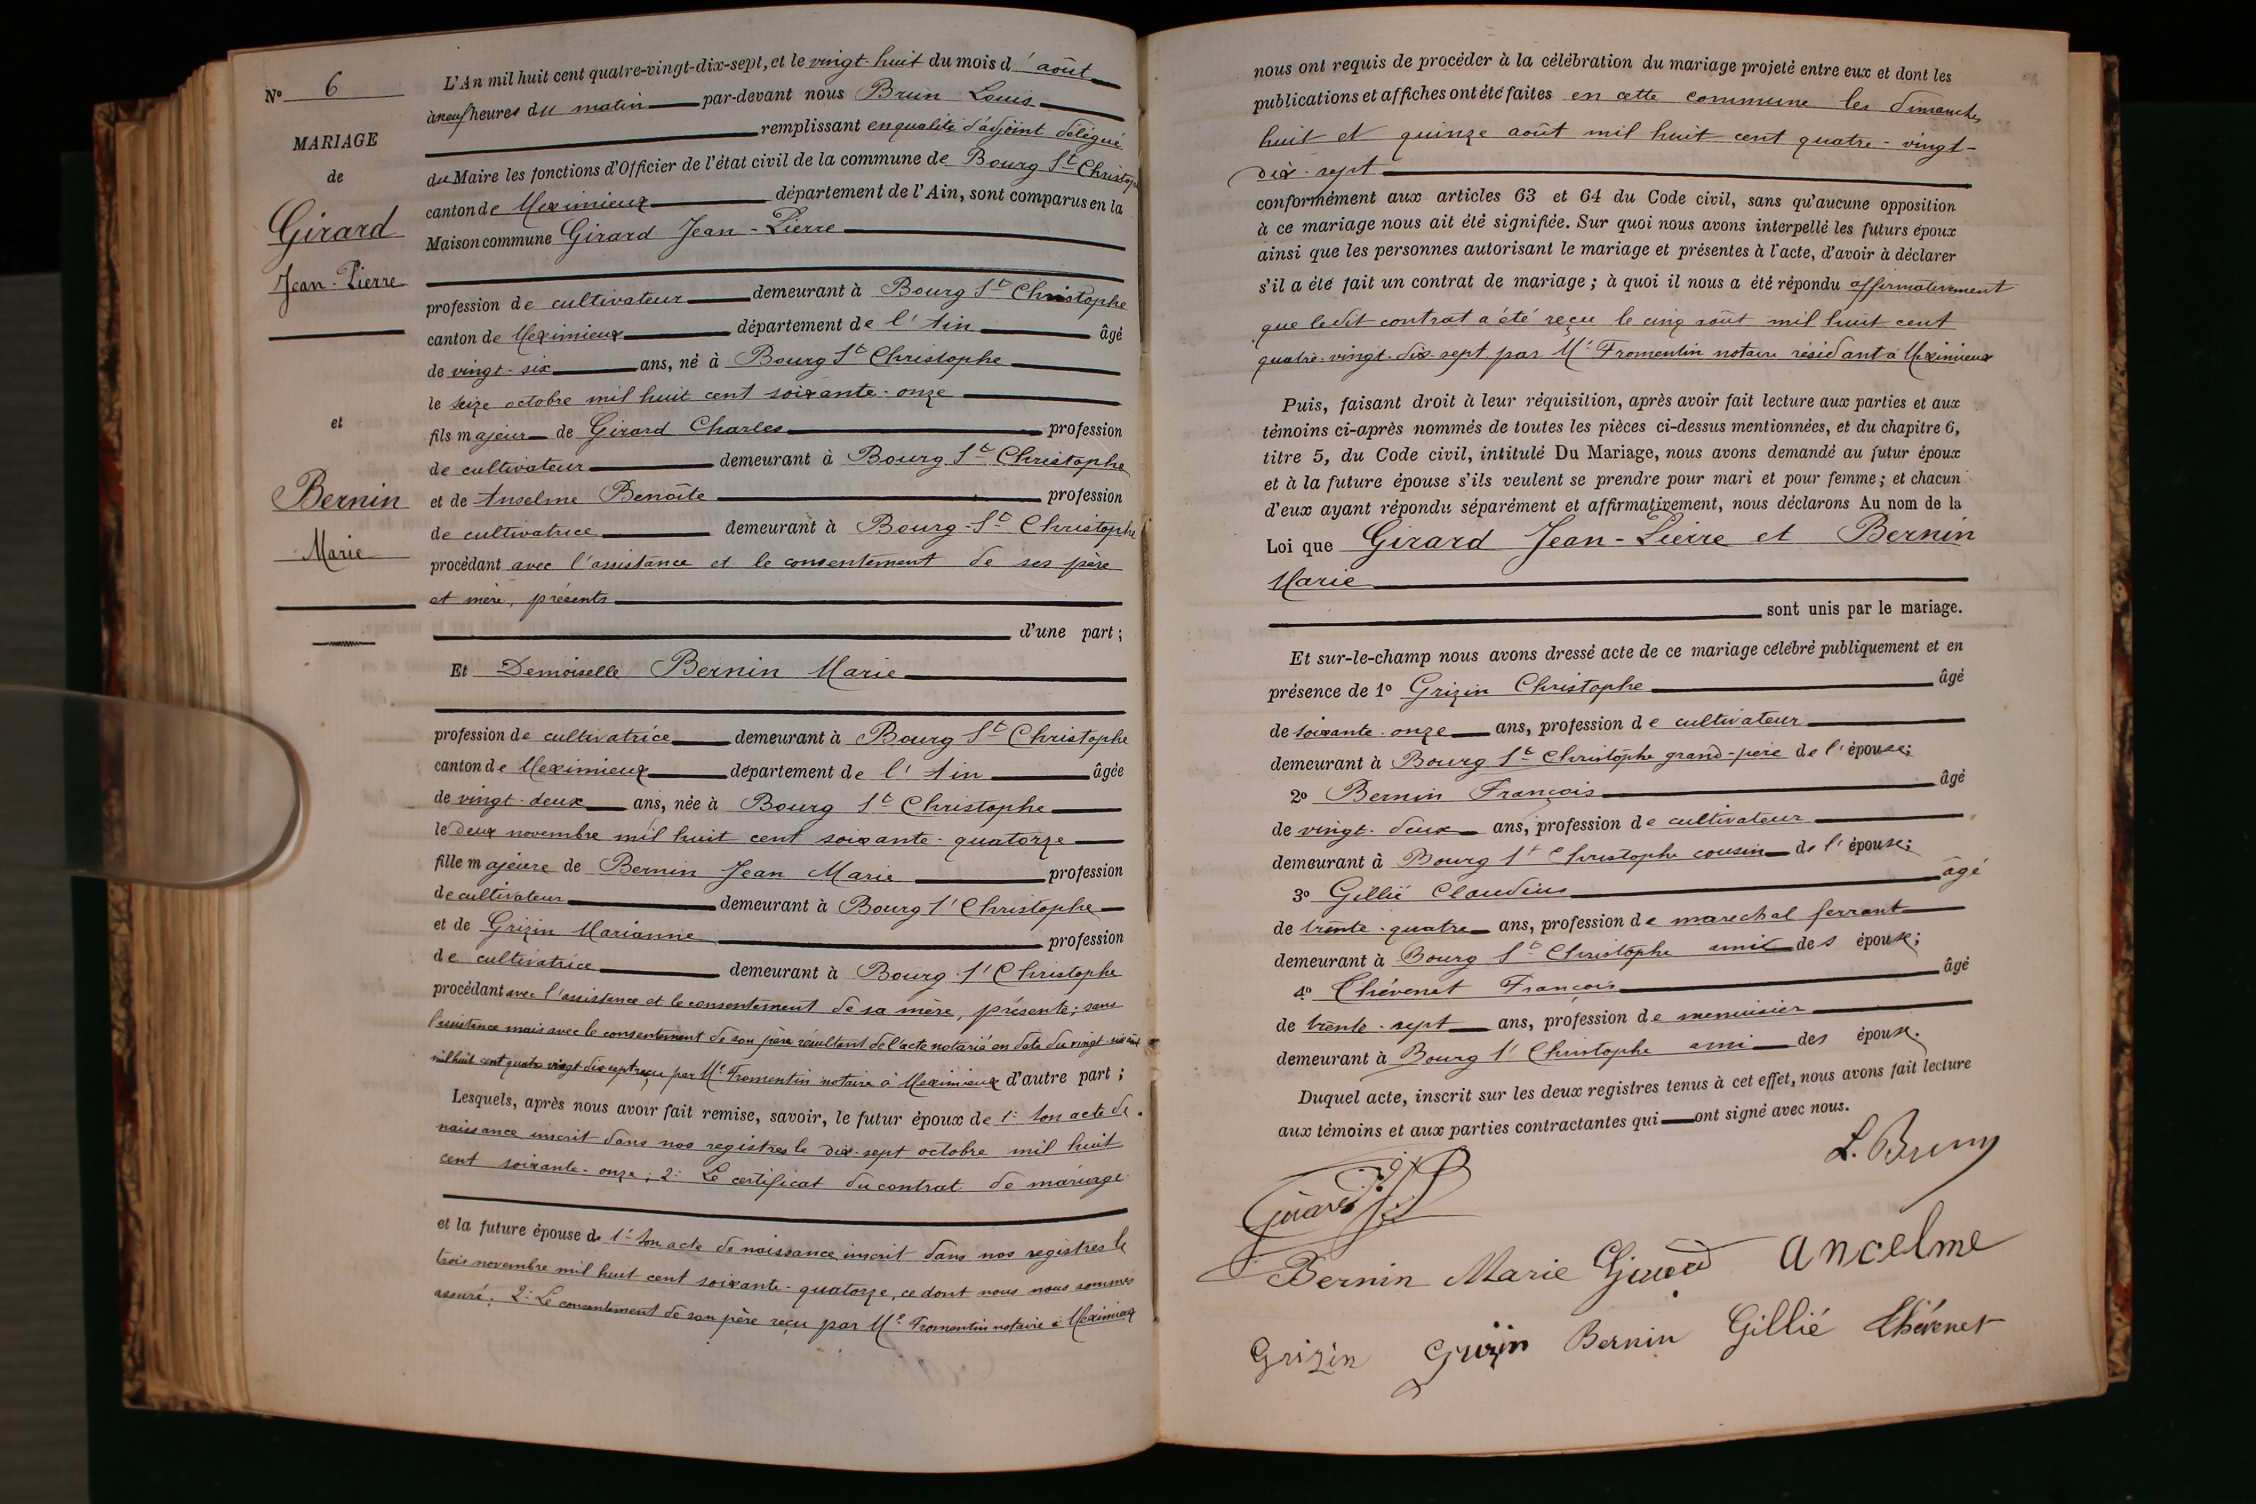 N° 6
MARIAGE
de
Girard
Jean-Pierre
et
Bernin
Marie
L'An mil huit cent quatre-vingt-dix-sept, et le vingt-huit du mois d'août
à neuf heures du matin par-devant nous Brun Louis
remplissant en qualité d'adjoint délégué
du Maire les fonctions d'Officier de l'état civil de la commune de Bourg St Christophe
canton de Meximieux département de l'Ain, sont comparus en la
Maison commune Girard Jean-Pierre
profession de cultivateur demeurant à Bourg St Christophe
canton de Meximieux département de l'Ain âgé
de vingt-six ans, né à Bourg St Christophe
le seize octobre mil huit cent soixante-onze
fils majeur de Girard Charles profession
de cultivateur demeurant à Bourg St Christophe
et de Anselme Benoîte profession
de cultivatrice demeurant à Bourg-St Christophe
procédant avec l'assistance et le consentement de ses père
et mère, présents
d'une part ;
Et Demoiselle Bernin Marie
profession de cultivatrice demeurant à Bourg St Christophe
canton de Meximieux département de l'Ain âgée
de vingt-deux ans, née à Bourg St Christophe
le deux novembre mil huit cent soixante-quatorze
fille majeure de Bernin Jean Marie profession
de cultivateur demeurant à Bourg St Christophe
et de Grizin Marianne profession
de cultivatrice demeurant à Bourg St Christophe
procédant avec l'assistance et le consentement de sa mère, présente; sans
l'assistance mais avec le consentement de son père résultant de l'acte notarié en date du vingt-six août
mil huit cent quatre vingt dix sept reçu par Me Fromentin notaire à Meximieux d'autre part ;
Lesquels, après nous avoir fait remise, savoir, le futur époux de 1° Son acte de
naissance inscrit dans nos registres le dix-sept octobre mil huit
cent soixante-onze; 2° Le certificat du contrat de mariage
et la future épouse de 1° Son acte de naissance inscrit dans nos registres le
trois novembre mil huit cent soixante-quatorze, ce dont nous nous sommes
assuré. 2° Le consentement de son père reçu par Me Fromentin notaire à Meximieux
nous ont requis de procéder à la célébration du mariage projeté entre eux et dont les
publications et affiches ont été faites en cette commune les dimanches
huit et quinze août mil huit cent quatre-vingt-
dix-sept
conformément aux articles 63 et 64 du Code civil, sans qu'aucune opposition
à ce mariage nous ait été signifiée. Sur quoi nous avons interpellé les futurs époux
ainsi que les personnes autorisant le mariage et présentes à l'acte, d'avoir à déclarer
s'il a été fait un contrat de mariage ; à quoi il nous a été répondu affirmativement
que ledit contrat a été reçu le cinq août mil huit cent
quatre-vingt-dix-sept par Me Fromentin notaire résidant à Meximieux
Puis, faisant droit à leur réquisition, après avoir fait lecture aux parties et aux
témoins ci-après nommés de toutes les pièces ci-dessus mentionnées, et du chapitre 6,
titre 5, du Code civil, intitulé Du Mariage, nous avons demandé au futur époux
et à la future épouse s'ils veulent se prendre pour mari et pour femme ; et chacun
d'eux ayant répondu séparément et affirmativement, nous déclarons Au nom de la
Loi que Girard Jean-Pierre et Bernin
Marie
sont unis par le mariage.
Et sur-le-champ nous avons dressé acte de ce mariage célébré publiquement et en
présence de 1° Grizin Christophe âgé
de soixante-onze ans, profession de cultivateur
demeurant à Bourg St Christophe grand-père de l'épouse;
2° Bernin François âgé
de vingt-deux ans, profession de cultivateur
demeurant à Bourg St Christophe cousin de l'épouse;
3° Gillié Claudius âgé
de trente-quatre ans, profession de maréchal ferrant
demeurant à Bourg St Christophe ami des époux;
4° Chévenet François âgé
de trente-sept ans, profession de menuisier
demeurant à Bourg St Christophe ami des époux.
Duquel acte, inscrit sur les deux registres tenus à cet effet, nous avons fait lecture
aux témoins et aux parties contractantes qui ont signé avec nous.
L. Brun
Girard
Bernin Marie Girard ancelme
Grizin Grizin Bernin Gillié Chévenet